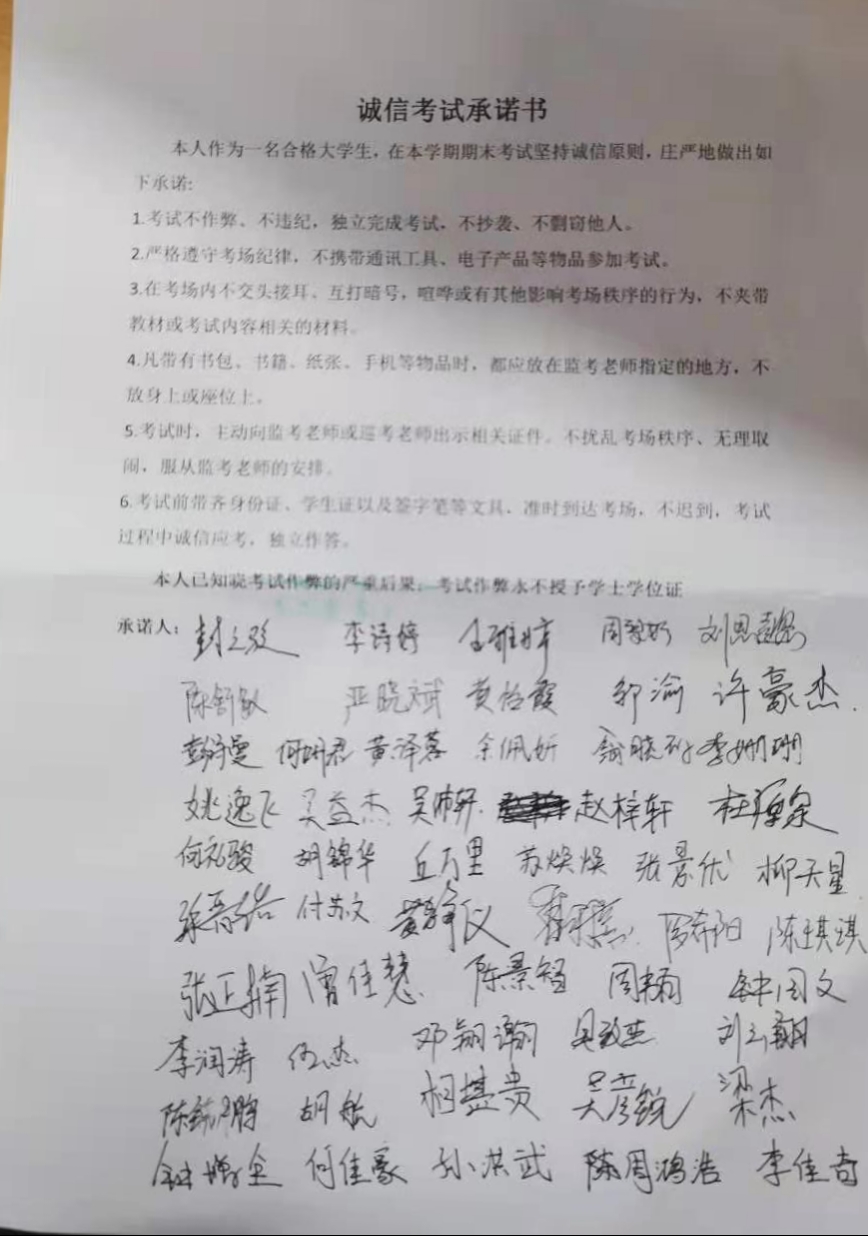 诚信考试承诺书
本人作为一名合格大学生，在本学期期末考试坚持诚信原则，庄严地做出如
下承诺:
1.考试不作弊、不违纪，独立完成考试，不抄袭、不剽窃他人。
2.严格遵守考场纪律，不携带通讯工具、电子产品等物品参加考试。
3.在考场内不交头接耳、互打暗号，喧哗或有其他影响考场秩序的行为，不夹带
教材或考试内容相关的材料。
4.凡带有书包、书籍、纸张、手机等物品时，都应放在监考老师指定的地方，不
放身上或座位上。
5.考试时，主动向监考老师或巡考老师出示相关证件。不扰乱考场秩序、无理取
闹，服从监考老师的安排。
6.考试前带齐身份证、学生证以及签字笔等文具，准时到达考场，不迟到，考试
过程中诚信应考，独立作答。
本人已知晓考试作弊的严重后果：考试作弊永不授予学士学位证
承诺人： 李诗婷
陈舒敏 严晓斌 黄怡霞 邹渝 许豪杰
何明君 黄泽蓉 余佩妍 李姗珊
姚逸飞 吴益杰 赵梓轩
胡锦华 丘万里 苏焕焕 张景优 柳天星
付苏文 罗希阳 陈琪琪
张正楠 曾佳慧 陈景韬 钟国文
李润涛 伍杰 邓翔瀚 吴致杰
胡航 柯基贵 吴彦锐 梁杰
何佳豪 孙洪武 陈周鸿浩 李佳奇